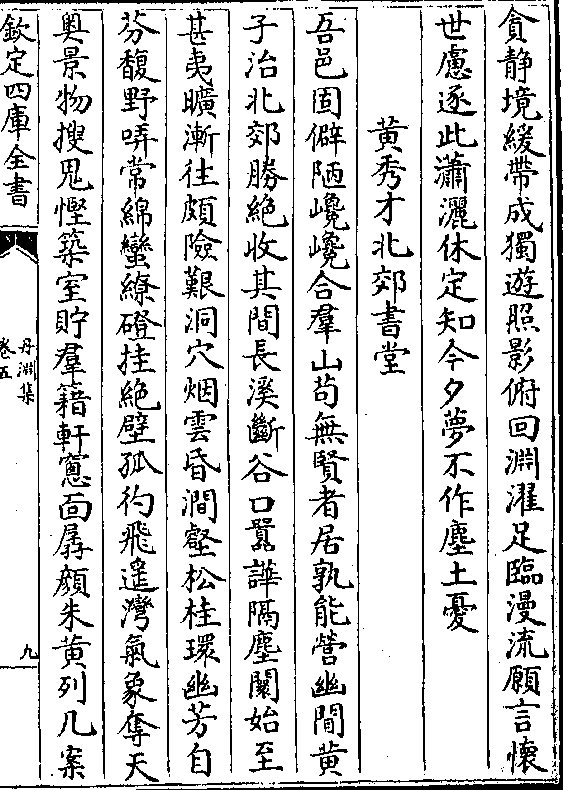 貪静境緩帶成獨遊照影俯回淵濯足臨漫流願言懷
世慮逐此瀟灑休定知今夕夢不作塵土憂
黄秀才北郊書堂
吾邑固僻陋巉巉合羣山茍無賢者居孰能營幽間黄
子治北郊勝絶收其間長溪斷谷口囂譁隔塵闤始至
甚夷曠漸往頗險艱洞穴烟雲昏澗壑松桂環幽芳自
芬馥野哢常綿蠻繚磴挂絶壁孤彴飛遥灣氣象奪天
奥景物搜鬼慳築室貯羣籍軒窻面孱顔朱黄列几案
欽定四庫全書
丹淵集
卷五
九